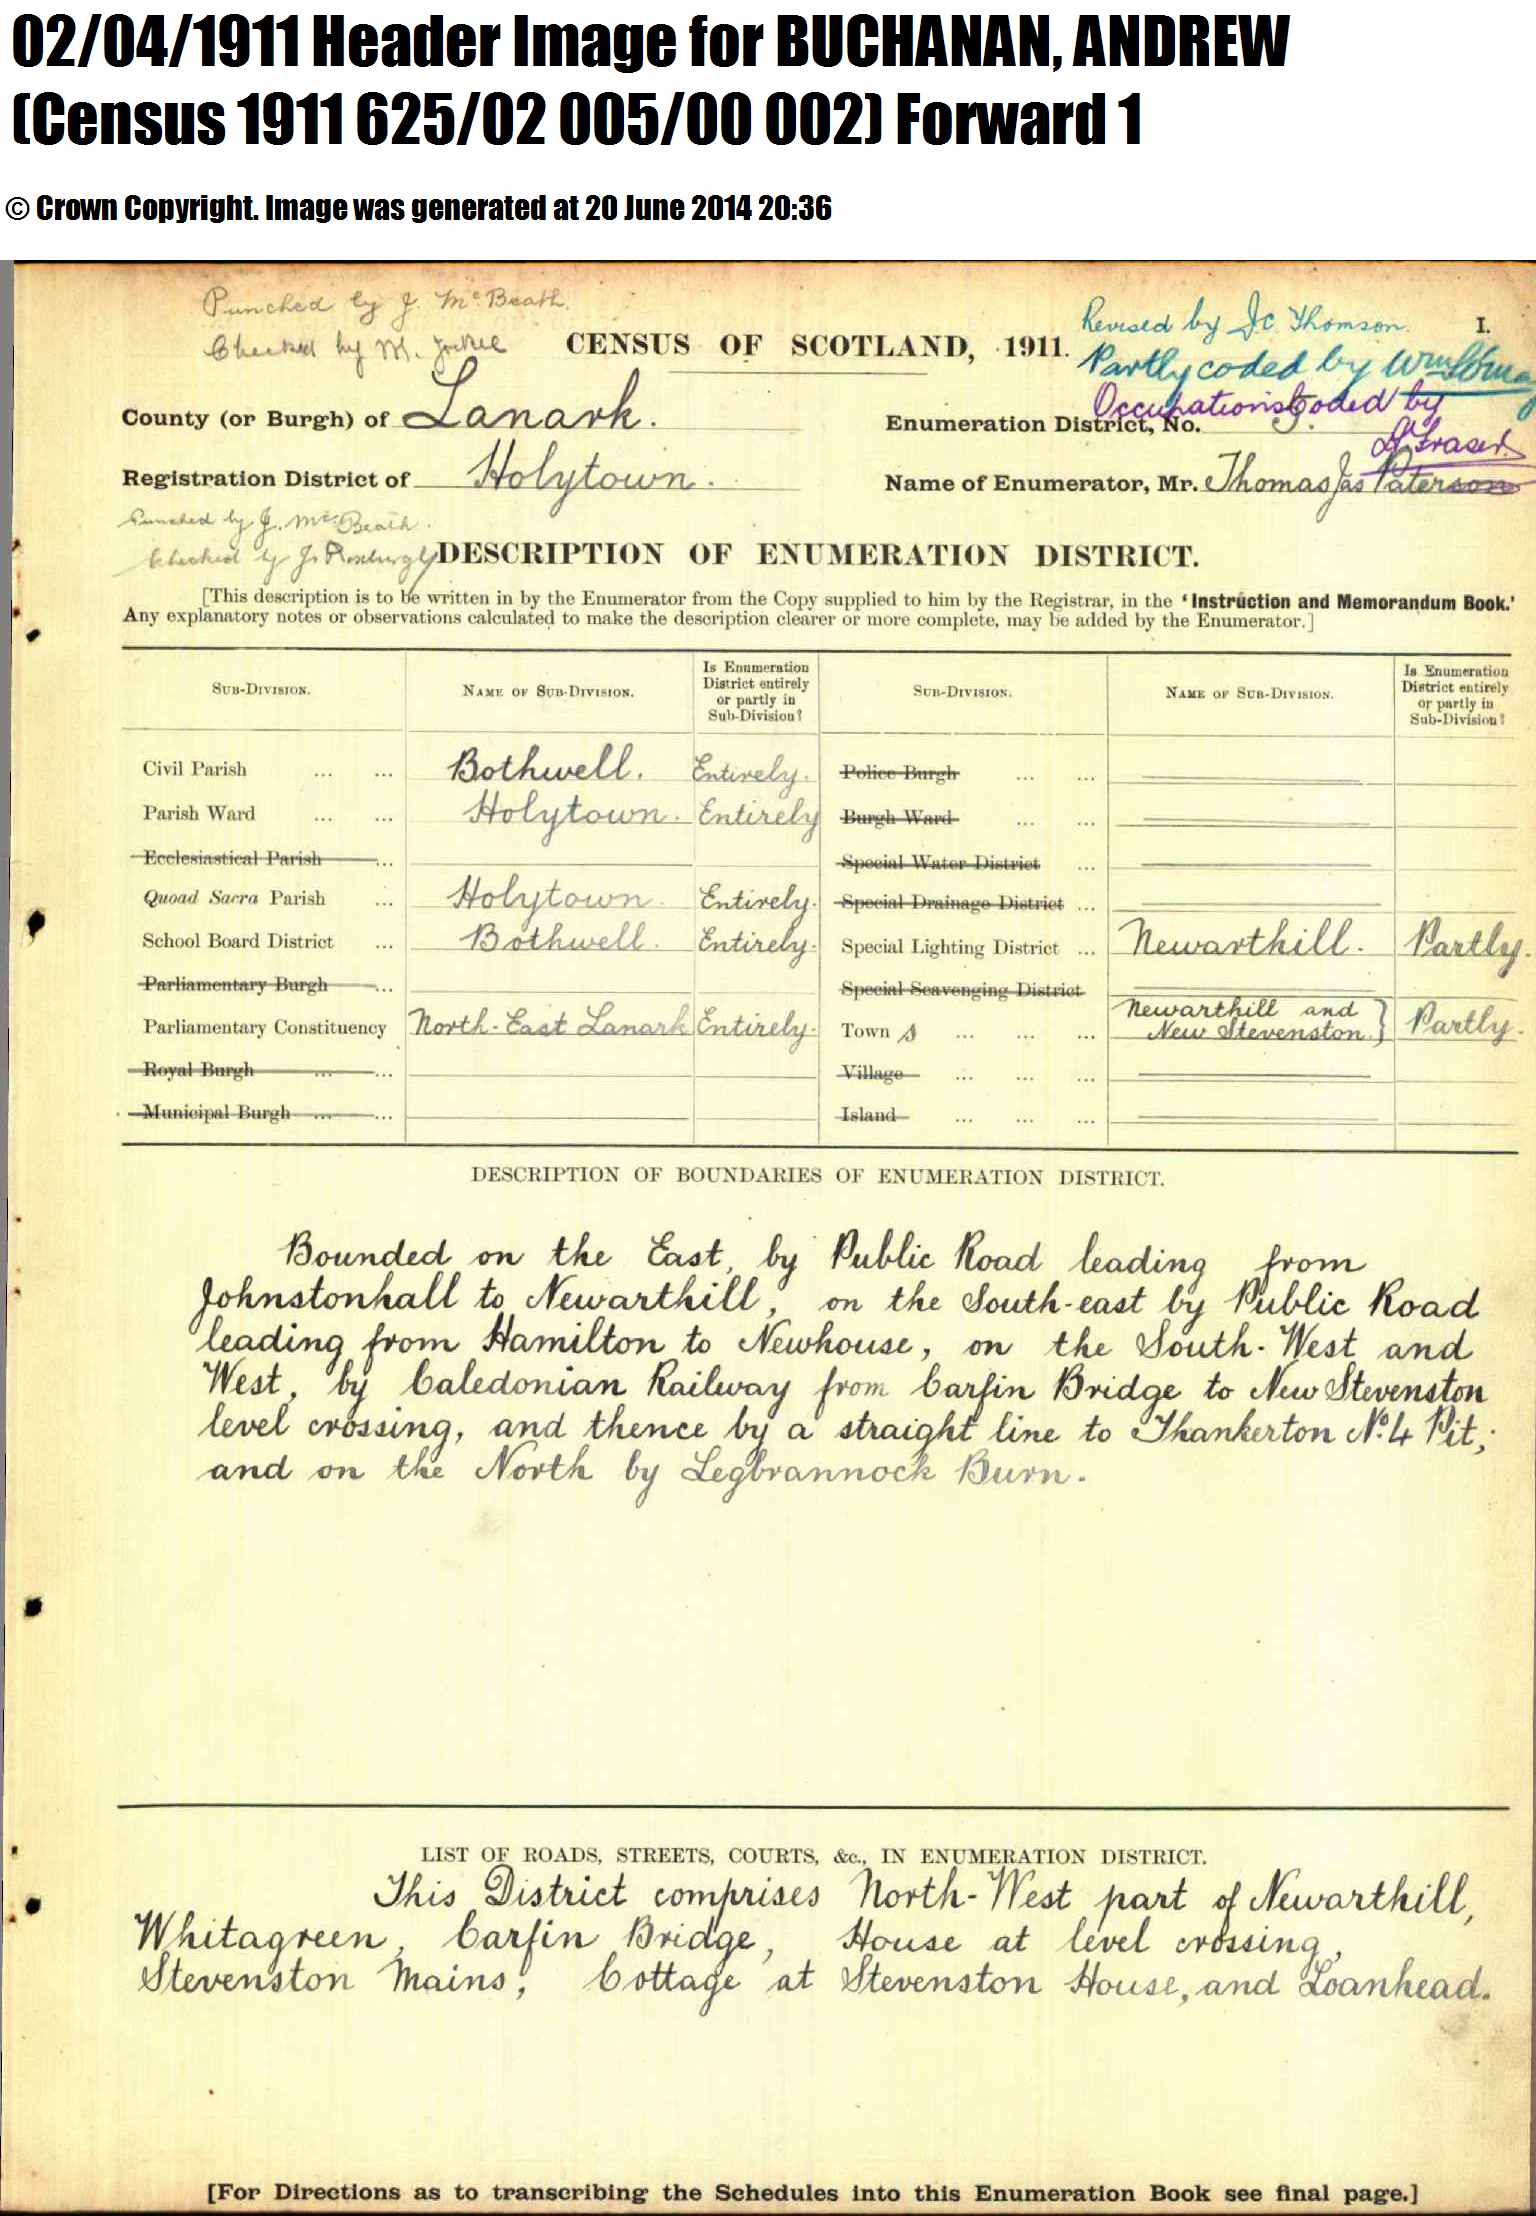 02/04/1911 Header Image for BUCHANAN, ANDREW
(Census 1911 625/02 005/00 002) Forward 1
© Crown Copyright. Image was generated at 20 June 2014 20:36
Punched by J. McBeath.
Checked by M.
CENSUS OF SCOTLAND, 1911.
Revised by J.C. Thomson.
I.
Partly coded by Wm
Occupations Coded by
Fraser.
County (or Burgh) of Lanark.
Enumeration District, No. 5.
Registration District of Holytown.
Name of Enumerator, Mr. Thomas Jas Paterson
Punched by J. McBeath.
Checked by J. Roxburgh
DESCRIPTION OF ENUMERATION DISTRICT.
[This description is to be written in by the Enumerator from the Copy supplied to him by the Registrar, in the 'Instruction and Memorandum Book.'
Any explanatory notes or observations calculated to make the description clearer or more complete, may be added by the Enumerator.]
Sub-Division. Name of Sub-Division. Is Enumeration District entirely or partly in Sub-Division? Sub-Division. Name of Sub-Division. Is Enumeration District entirely or partly in Sub-Division?
Civil Parish ... ... Bothwell. Entirely. Police Burgh ... ...
Parish Ward ... ... Holytown. Entirely Burgh Ward ... ...
Ecclesiastical Parish ... Special Water District ...
Quoad Sacra Parish ... Holytown. Entirely. Special Drainage District ...
School Board District ... Bothwell. Entirely. Special Lighting District ... Newarthill. Partly.
Parliamentary Burgh ... Special Scavenging District
Parliamentary Constituency North-East Lanark Entirely. Town s ... ... ... Newarthill and New Stevenston } Partly.
Royal Burgh ... ... Village ... ... ...
Municipal Burgh ... ... Island ... ... ...
DESCRIPTION OF BOUNDARIES OF ENUMERATION DISTRICT.
Bounded on the East, by Public Road leading from
Johnstonhall to Newarthill, on the South-east by Public Road
leading from Hamilton to Newhouse, on the South-West and
West, by Caledonian Railway from Carfin Bridge to New Stevenston
level crossing, and thence by a straight line to Thankerton No. 4 Pit;
and on the North by Legbrannock Burn.
LIST OF ROADS, STREETS, COURTS, &c., IN ENUMERATION DISTRICT.
This District comprises North-West part of Newarthill,
Whitagreen, Carfin Bridge, House at level crossing,
Stevenston Mains, Cottage at Stevenston House, and Loanhead.
[For Directions as to transcribing the Schedules into this Enumeration Book see final page.]